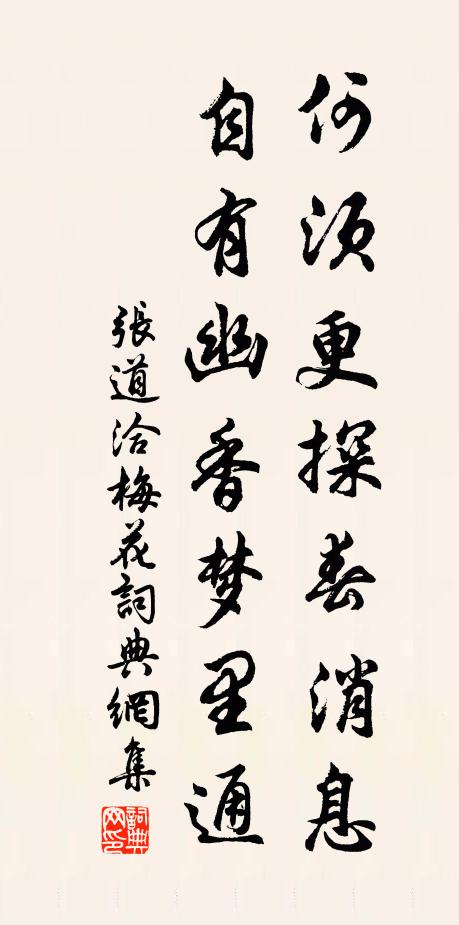 何须更探春消息
自有幽香梦里通
張道洽梅花詞典網集
詞典網印